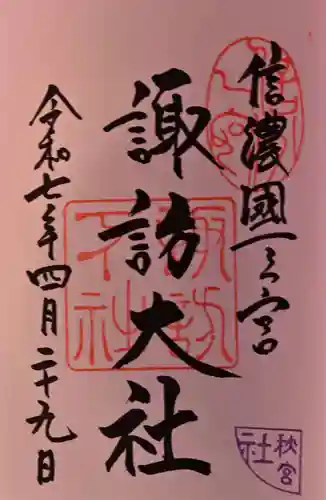 信濃國一之宮
諏訪大社
令和七年四月二十九日
諏訪大社
秋宮
社